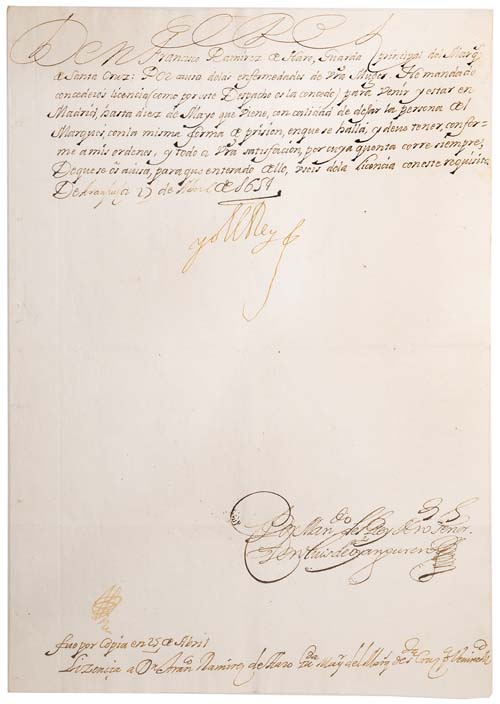 EL REY
Don Francisco Ramirez de Haro, Guarda principal del Marq.s
de Santa Cruz: Por causa de las enfermedades de vra Muger. He mandado
concederos licencia (como por este Despacho os la concedo) para venir y estar en
Madrid, hasta diez de Mayo que viene, con calidad de dejar la persona del
Marques, con la misma forma de prision, en que se halla, y devo tener, confor-
me a mis ordenes, y todo a vra satisfacion, por cuya quenta corre siempre;
De que se os avisa, para que enterado dello, useis de la licencia con este requisito.
De Aranjuez 27 de Abril de 1654
yo El Rey
Por Man.do del Rey nro Señor.
Don Luis de Oyanguren
fue por Copia en 25 de Abril
Lizencia a Dn. Fran.co Ramirez de Haro del Marq. de S.ta Cruz